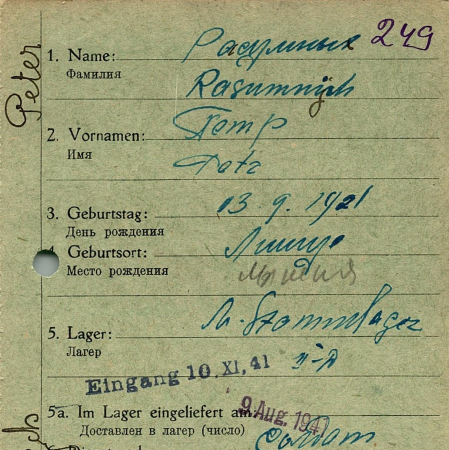 249
Peter
1. Name: Разумных
Фамилия Rasumnych
2. Vornamen: Петр
Имя
3. Geburtstag: 03. 9. 1921
День рождения
4. Geburtsort:
Место рождения
5. Lager: M. Stammlager
Лагер II-A
Eingang 10. XI. 41
5a. Im Lager eingeliefert am: 9. Aug. 1941
Доставлен в лагер (число) Солдат